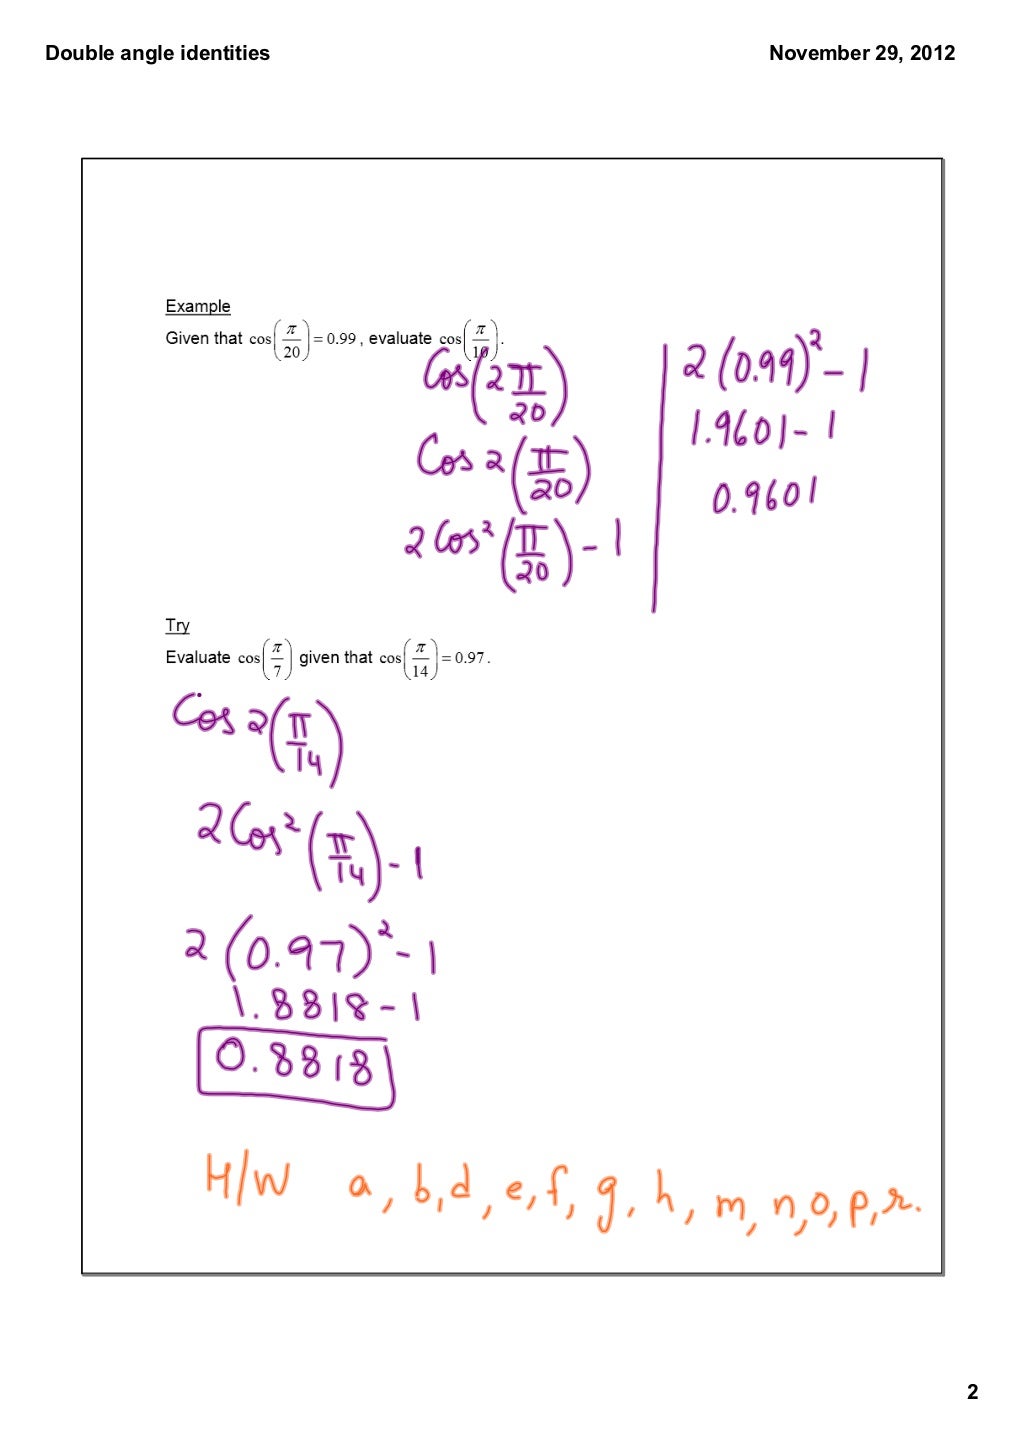 Double angle identities November 29, 2012
Example
Given that cos(π/20) = 0.99, evaluate cos(π/10).
Cos(2π/20)
Cos 2(π/20)
2Cos²(π/20) - 1
2(0.99)² - 1
1.9601 - 1
0.9601
Try
Evaluate cos(π/7) given that cos(π/14) = 0.97.
Cos 2(π/14)
2Cos²(π/14) - 1
2(0.97)² - 1
1.8818 - 1
0.8818
H/W a, b, d, e, f, g, h, m, n, o, p, r.
2